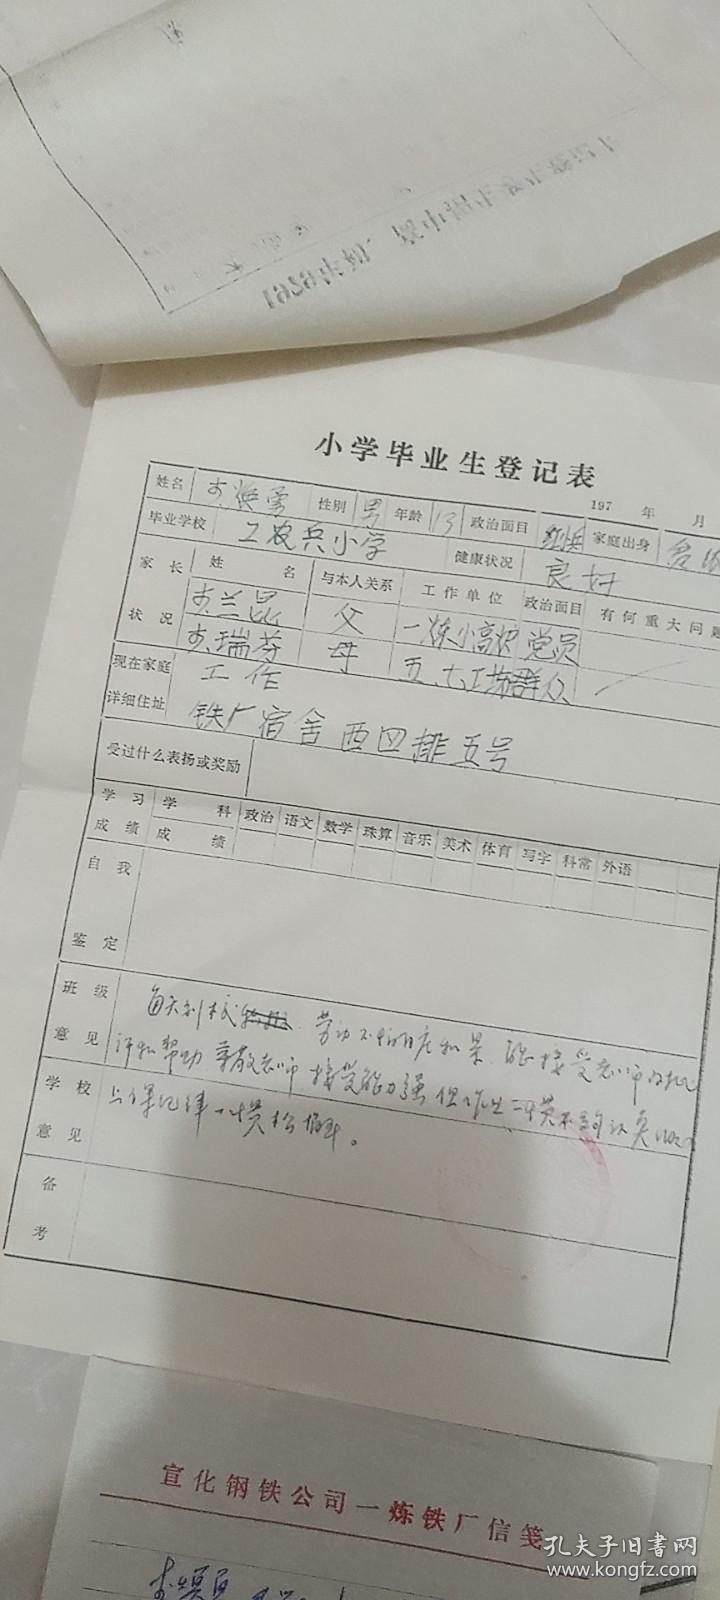 小学毕业生登记表
197 年 月
姓名 性别 男 年龄 13 政治面目 红小兵 家庭出身
毕业学校 工农兵小学 健康状况 良好
家长 姓名 与本人关系 工作单位 政治面目 有何重大问题
状况 李兰昆 父 一炼小高炉 党员
李瑞芬 母 五.七工场 群众
现在家庭 工作
详细住址 铁厂宿舍西四排五号
受过什么表扬或奖励
学习 学科 政治 语文 数学 珠算 音乐 美术 体育 写字 科常 外语
成绩 成绩
自我
鉴定
班级 每天到校 劳动不怕脏和累 能接受老师的批
意见 评和帮助 尊敬老师 接受能力强 但作业 不够认真
学校 上课纪律
意见
备
考
宣化钢铁公司一炼铁厂信笺
孔夫子旧书网
www.kongfz.com